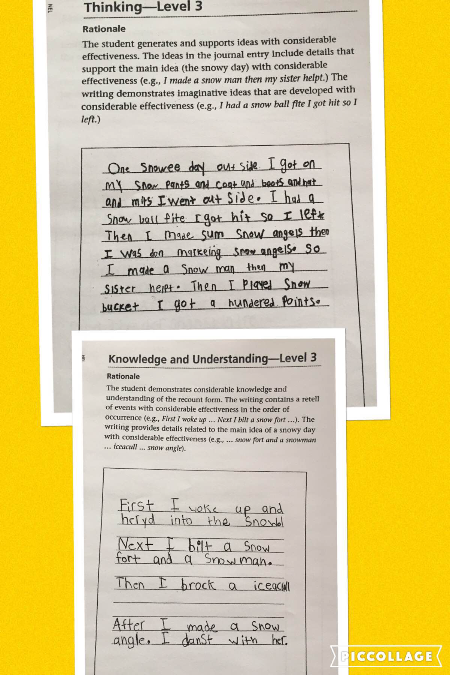 Thinking—Level 3
Rationale
The student generates and supports ideas with considerable
effectiveness. The ideas in the journal entry include details that
support the main idea (the snowy day) with considerable
effectiveness (e.g., I made a snow man then my sister helpt.) The
writing demonstrates imaginative ideas that are developed with
considerable effectiveness (e.g., I had a snow ball fite I got hit so I
left.)
One snowee day out side I got on
my snow pants and coat and boots and hat
and mits I went out side. I had a
snow ball fite I got hit so I left
Then I made sum snow angels then
I was don markeing snow angels. so
I made a snow man then my
sister helpt. Then I Played Snow
bucket I got a hundered Points.
Knowledge and Understanding—Level 3
Rationale
The student demonstrates considerable knowledge and
understanding of the recount form. The writing contains a retell
of events with considerable effectiveness in the order of
occurrence (e.g., First I woke up ... Next I bilt a snow fort ...). The
writing provides details related to the main idea of a snowy day
with considerable effectiveness (e.g., ... snow fort and a snowman
... iceacull ... snow angle).
First I woke up and
into the
Next I bilt a Snow
fort and a Snowman.
Then I brock a iceacull
After I made a Snow
angle. I danst with her.
PICCOLLAGE